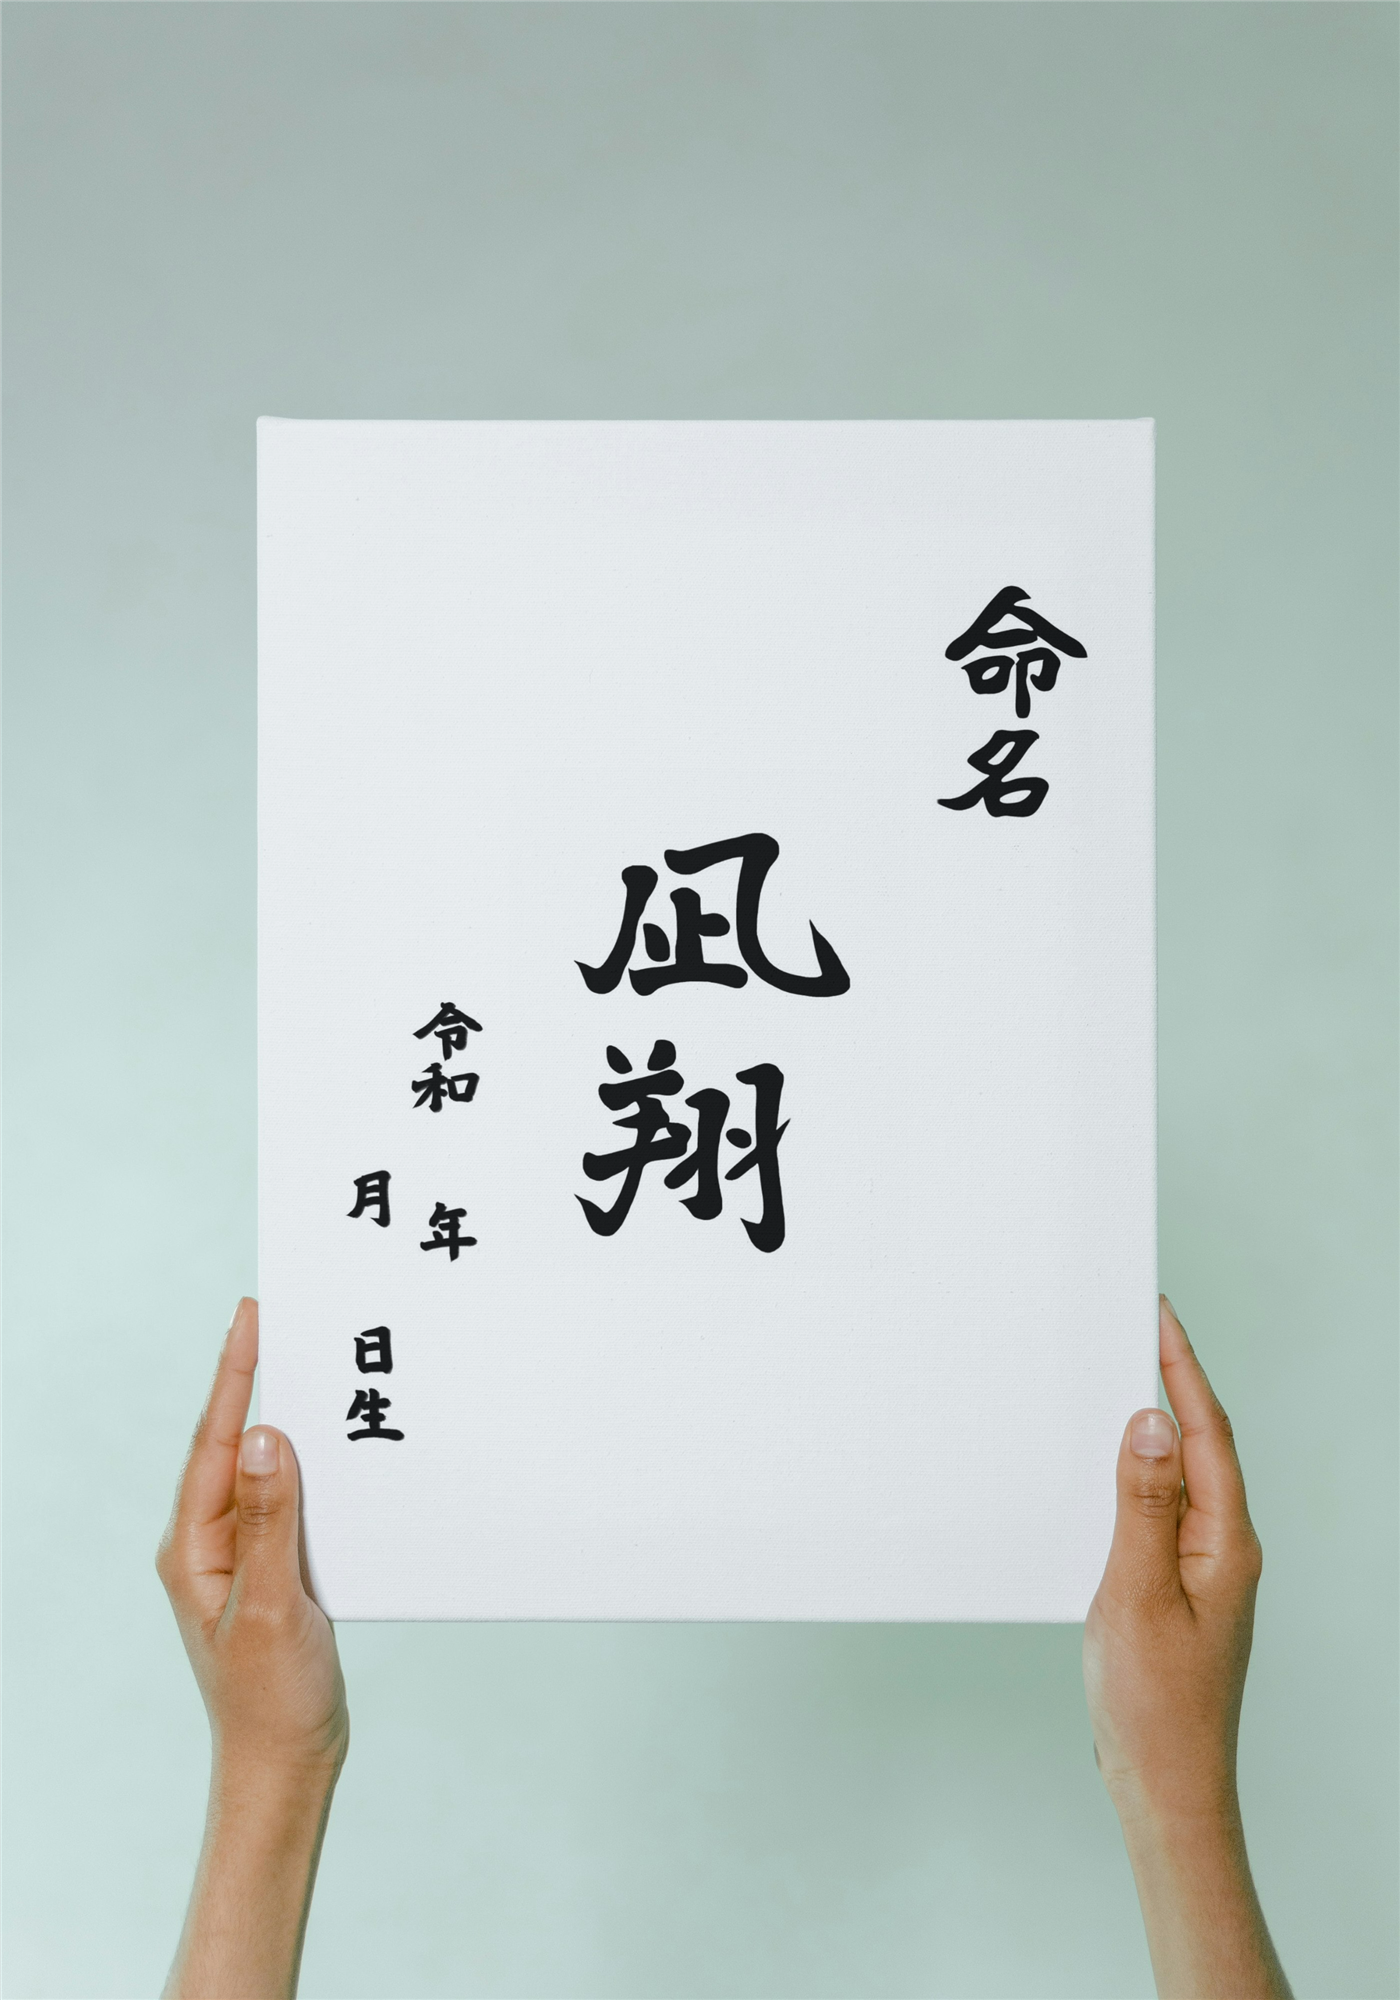 命名
凪翔
令和 年
月 日生